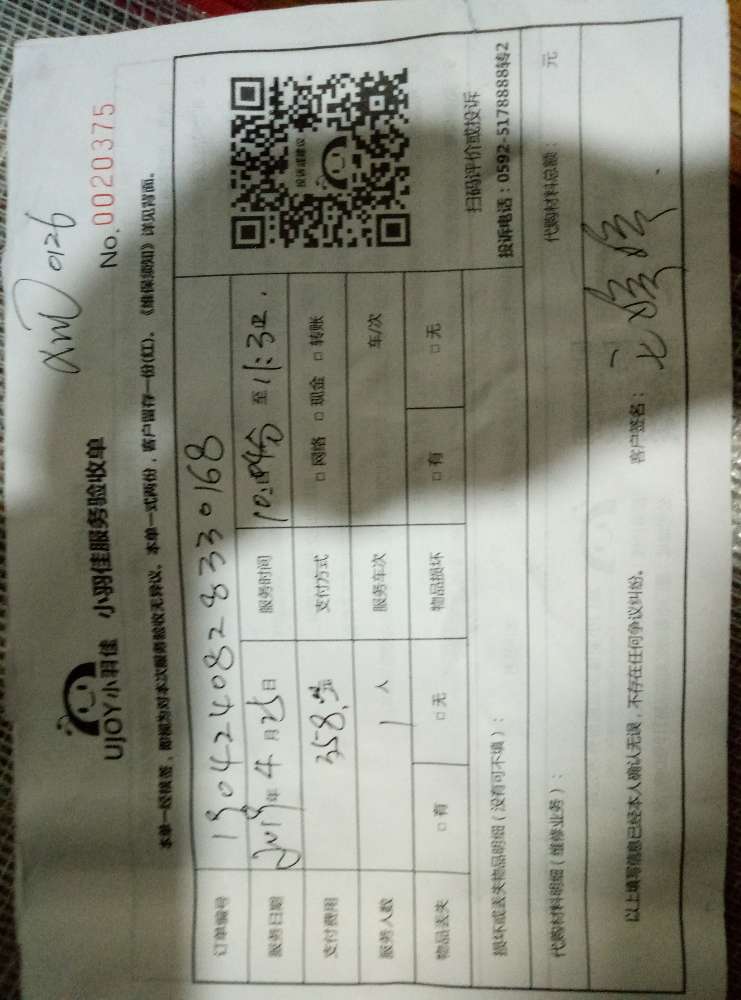 xm 0126
UJOY小羽佳 小羽佳服务验收单 No.0020375
本单一经核签，即视为对本次服务验收无异议。本单一式两份，客户留存一份(红)。《维保须知》详见背面。
订单编号 1904240828330168
服务日期 2019年4月25日 服务时间 至11:30.
支付费用 358.元 支付方式 □ 网络 □ 现金 □ 转账
服务人数 1 人 服务车次 车/次
物品丢失 □ 有 □ 无 物品损坏 □ 有 □ 无
投诉或建议
扫码评价或投诉
投诉电话：0592-5178888转2
损坏或丢失物品明细（没有可不填）：
代购材料明细（维修业务）： 代购材料总额： 元
以上填写信息已经本人确认无误，不存在任何争议纠纷。 客户签名：